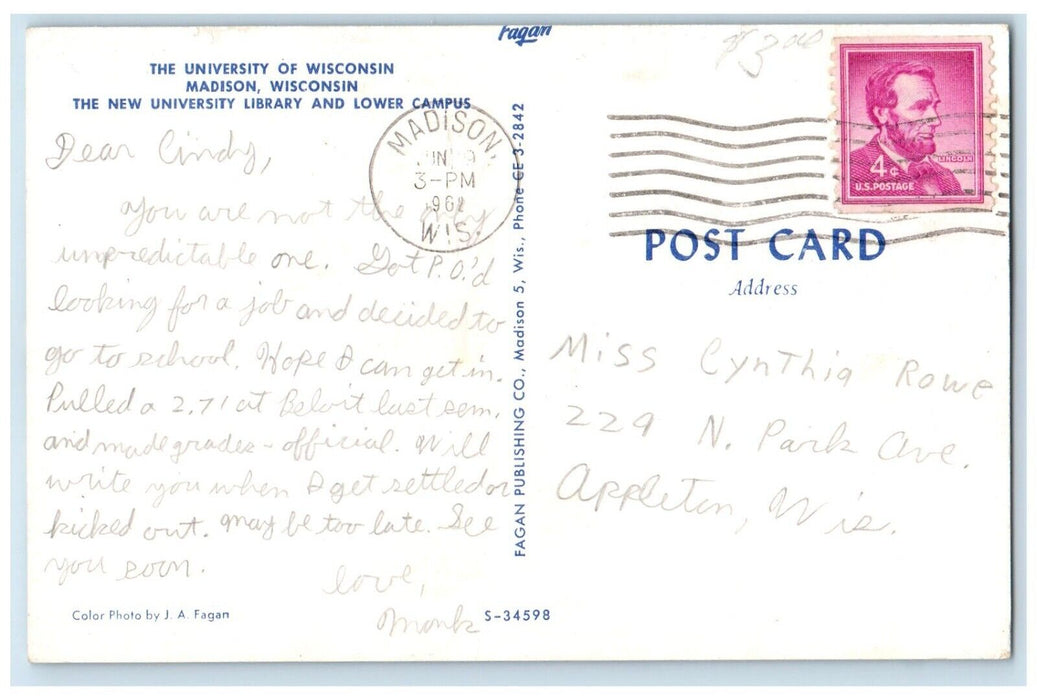 Fagan
$3.00
THE UNIVERSITY OF WISCONSIN
MADISON, WISCONSIN
THE NEW UNIVERSITY LIBRARY AND LOWER CAMPUS
Dear Cindy,
You are not the only
unpredictable one. Got P.O.'d
looking for a job and decided to
go to school. Hope I can get in.
Pulled a 2.71 at Beloit last sem.
and made grades - official. Will
write you when I get settled or
kicked out. may be too late. See
you soon.
love,
Monk
Color Photo by J. A. Fagan
S-34598
FAGAN PUBLISHING CO., Madison 5, Wis., Phone CE 3-2842
MADISON,
JUN 9
3-PM
WIS.
4¢
LINCOLN
U.S. POSTAGE
POST CARD
Address
Miss Cynthia Rowe
229 N. Park Ave.
Appleton, Wis.